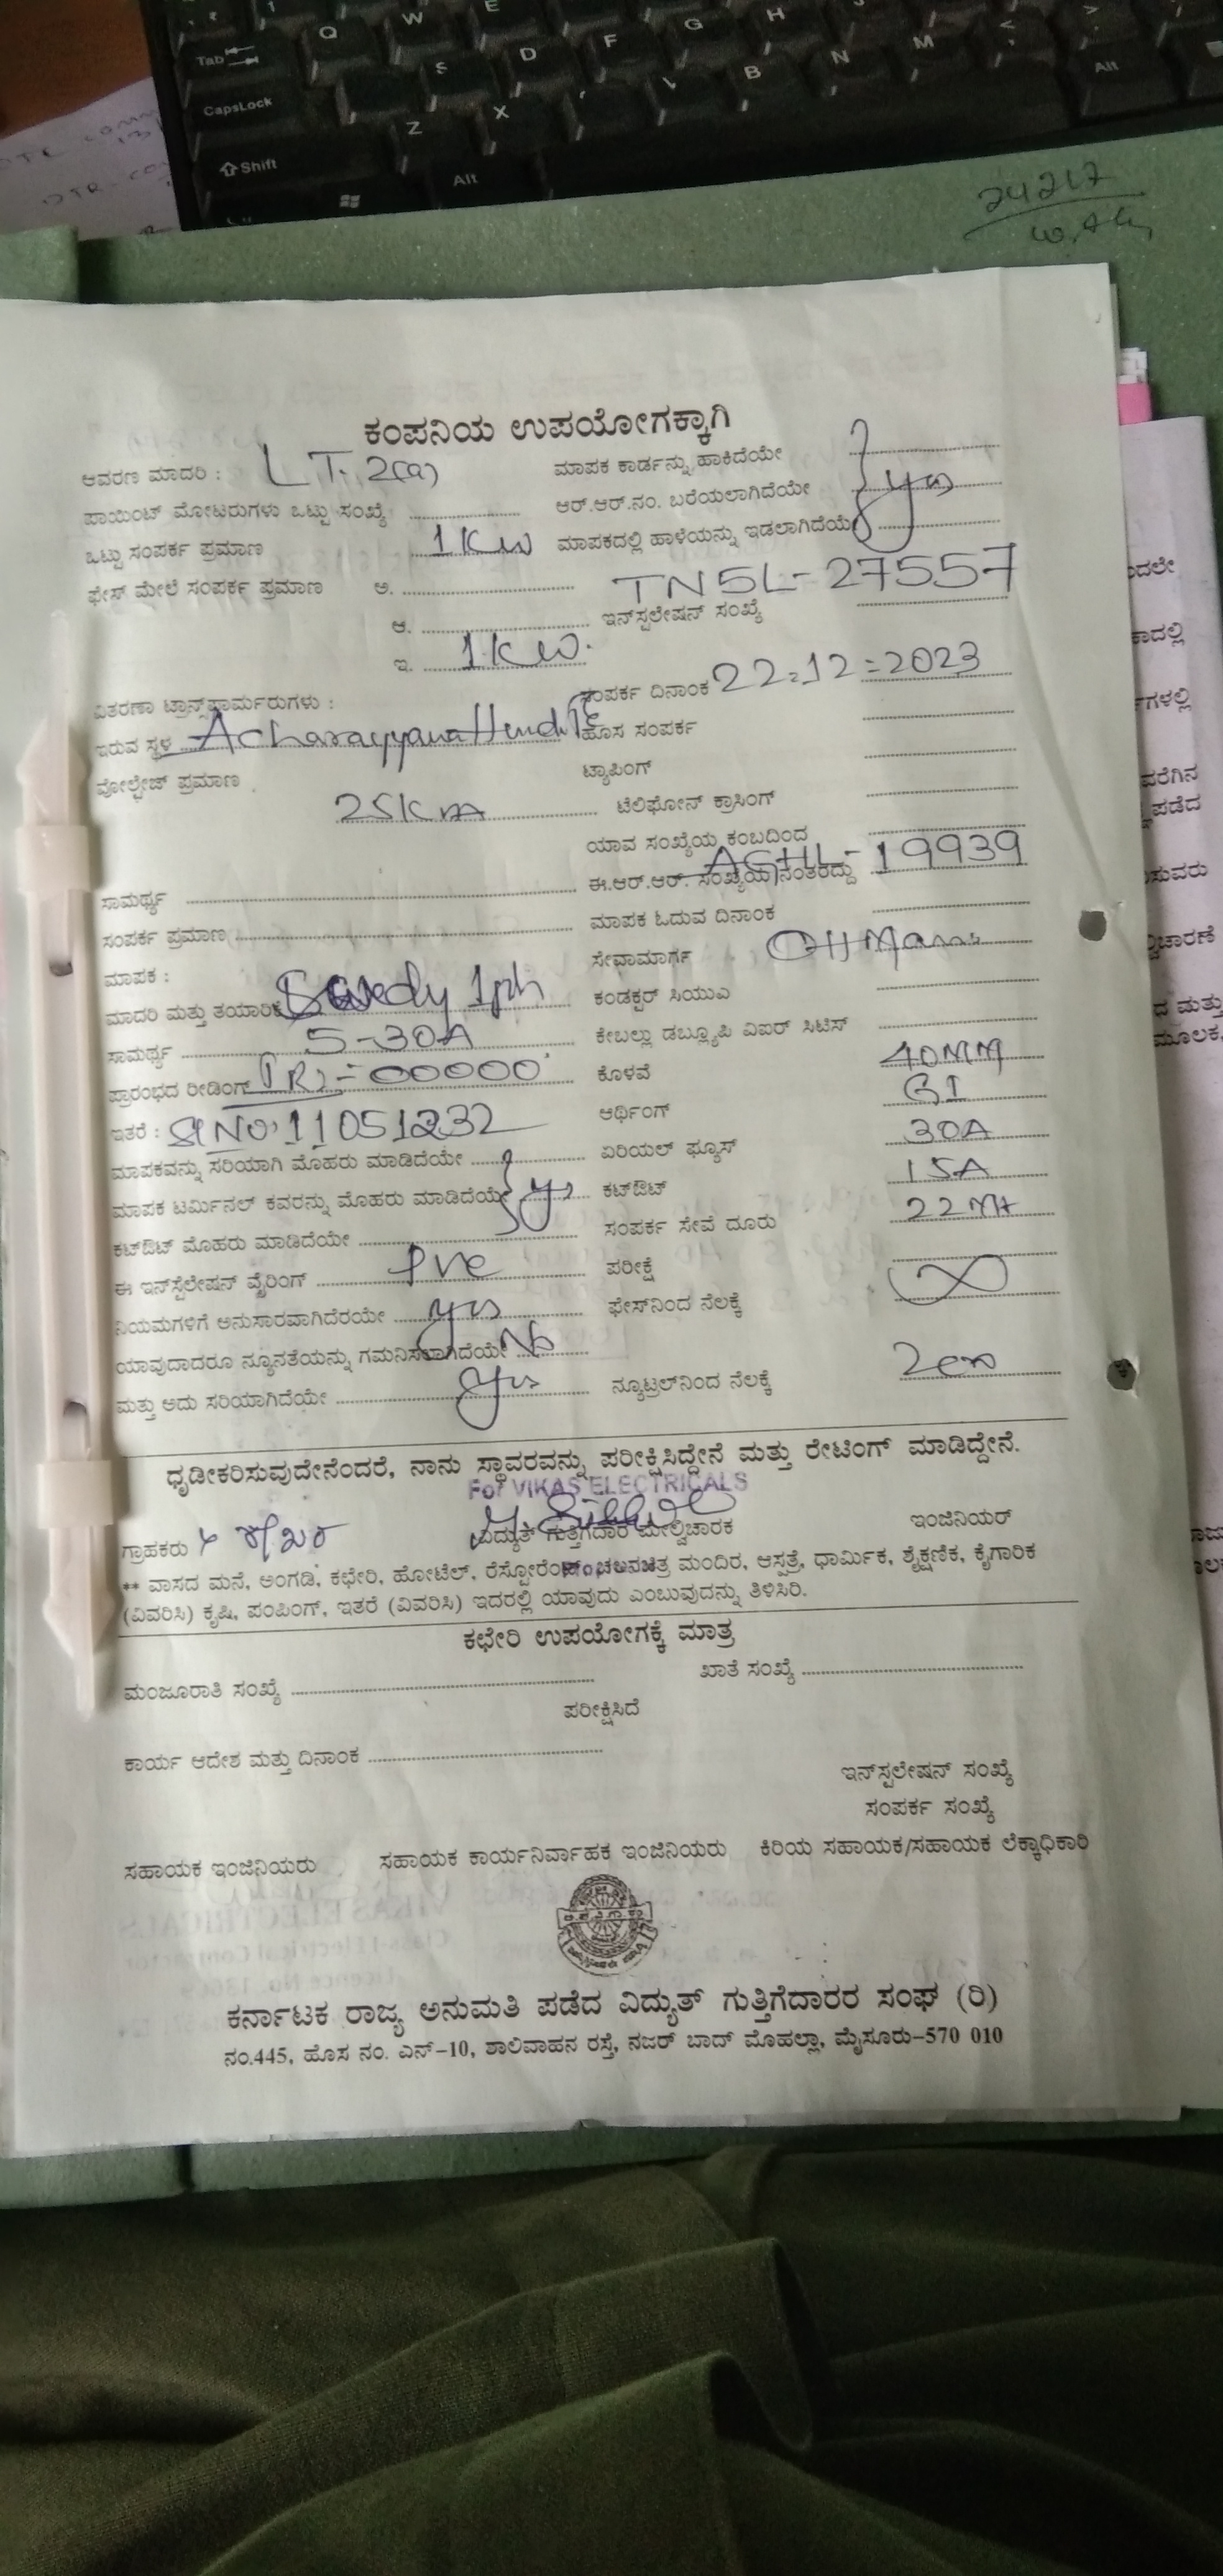 Tab Q W E
CapsLock S D F G H
Shift Z X B N M Alt
Alt
24217
ಕಂಪನಿಯ ಉಪಯೋಗಕ್ಕಾಗಿ
ಆವರಣ ಮಾದರಿ : LT-2(a) ಮಾಪಕ ಕಾರ್ಡನ್ನು ಹಾಕಿದೆಯೇ
ಪಾಯಿಂಟ್ ಮೋಟರುಗಳು ಒಟ್ಟು ಸಂಖ್ಯೆ ಆರ್.ಆರ್.ನಂ. ಬರೆಯಲಾಗಿದೆಯೇ yes
ಒಟ್ಟು ಸಂಪರ್ಕ ಪ್ರಮಾಣ 1KW ಮಾಪಕದಲ್ಲಿ ಹಾಳೆಯನ್ನು ಇಡಲಾಗಿದೆಯೇ
ಫೇಸ್ ಮೇಲೆ ಸಂಪರ್ಕ ಪ್ರಮಾಣ ಅ. TN5L-27557
ಆ. ಇನ್‌ಸ್ಟಲೇಷನ್ ಸಂಖ್ಯೆ
ಇ. 1KW.
ವಿತರಣಾ ಟ್ರಾನ್ಸ್‌ಫಾರ್ಮರುಗಳು : ಸಂಪರ್ಕ ದಿನಾಂಕ 22-12-2023
ಇರುವ ಸ್ಥಳ ಹೊಸ ಸಂಪರ್ಕ
ವೋಲ್ಟೇಜ್ ಪ್ರಮಾಣ ಟ್ಯಾಪಿಂಗ್
ಟೆಲಿಫೋನ್ ಕ್ರಾಸಿಂಗ್
ಯಾವ ಸಂಖ್ಯೆಯ ಕಂಬದಿಂದ
ಸಾಮರ್ಥ್ಯ ಈ.ಆರ್.ಆರ್. ಸಂಖ್ಯೆಯ ನಂತರದ್ದು AGHL-19939
ಸಂಪರ್ಕ ಪ್ರಮಾಣ ಮಾಪಕ ಓದುವ ದಿನಾಂಕ
ಮಾಪಕ : ಸೇವಾಮಾರ್ಗ
ಮಾದರಿ ಮತ್ತು ತಯಾರಿಕೆ 1ph ಕಂಡಕ್ಟರ್ ಸಿಯುಎ
ಸಾಮರ್ಥ್ಯ 5-30A ಕೇಬಲ್ಲು ಡಬ್ಲ್ಯೂಪಿ ವಿಐರ್ ಸಿಟಿಸ್
ಪ್ರಾರಂಭದ ರೀಡಿಂಗ್ 00000 ಕೊಳವೆ 40MM
ಇತರೆ : Sl No: 11051232 ಆರ್ಥಿಂಗ್ GI
ಮಾಪಕವನ್ನು ಸರಿಯಾಗಿ ಮೊಹರು ಮಾಡಿದೆಯೇ ಏರಿಯಲ್ ಫ್ಯೂಸ್ 30A
ಮಾಪಕ ಟರ್ಮಿನಲ್ ಕವರನ್ನು ಮೊಹರು ಮಾಡಿದೆಯೇ ಕಟ್‌ಔಟ್ 15A
ಕಟ್‌ಔಟ್ ಮೊಹರು ಮಾಡಿದೆಯೇ ಸಂಪರ್ಕ ಸೇವೆ ದೂರು 22Mt
ಈ ಇನ್‌ಸ್ಟೆಲೇಷನ್ ವೈರಿಂಗ್ PVC ಪರೀಕ್ಷೆ
ನಿಯಮಗಳಿಗೆ ಅನುಸಾರವಾಗಿದೆರಯೇ yes ಫೇಸ್‌ನಿಂದ ನೆಲಕ್ಕೆ ∞
ಯಾವುದಾದರೂ ನ್ಯೂನತೆಯನ್ನು ಗಮನಿಸಲಾಗಿದೆಯೇ No
ಮತ್ತು ಅದು ಸರಿಯಾಗಿದೆಯೇ yes ನ್ಯೂಟ್ರಲ್‌ನಿಂದ ನೆಲಕ್ಕೆ
ಧೃಡೀಕರಿಸುವುದೇನೆಂದರೆ, ನಾನು ಸ್ಥಾವರವನ್ನು ಪರೀಕ್ಷಿಸಿದ್ದೇನೆ ಮತ್ತು ರೇಟಿಂಗ್ ಮಾಡಿದ್ದೇನೆ.
For VIKAS ELECTRICALS
ಗ್ರಾಹಕರು ವಿದ್ಯುತ್ ಗುತ್ತಿಗೆದಾರ ಮೇಲ್ವಿಚಾರಕ ಇಂಜಿನಿಯರ್
** ವಾಸದ ಮನೆ, ಅಂಗಡಿ, ಕಛೇರಿ, ಹೋಟೆಲ್, ರೆಸ್ಟೋರೆಂಟ್, ಚಲನಚಿತ್ರ ಮಂದಿರ, ಆಸ್ಪತ್ರೆ, ಧಾರ್ಮಿಕ, ಶೈಕ್ಷಣಿಕ, ಕೈಗಾರಿಕ
(ವಿವರಿಸಿ) ಕೃಷಿ, ಪಂಪಿಂಗ್, ಇತರೆ (ವಿವರಿಸಿ) ಇದರಲ್ಲಿ ಯಾವುದು ಎಂಬುವುದನ್ನು ತಿಳಿಸಿರಿ.
ಕಛೇರಿ ಉಪಯೋಗಕ್ಕೆ ಮಾತ್ರ
ಮಂಜೂರಾತಿ ಸಂಖ್ಯೆ ಖಾತೆ ಸಂಖ್ಯೆ
ಪರೀಕ್ಷಿಸಿದೆ
ಕಾರ್ಯ ಆದೇಶ ಮತ್ತು ದಿನಾಂಕ
ಇನ್‌ಸ್ಟಲೇಷನ್ ಸಂಖ್ಯೆ
ಸಂಪರ್ಕ ಸಂಖ್ಯೆ
ಸಹಾಯಕ ಇಂಜಿನಿಯರು ಸಹಾಯಕ ಕಾರ್ಯನಿರ್ವಾಹಕ ಇಂಜಿನಿಯರು ಕಿರಿಯ ಸಹಾಯಕ/ಸಹಾಯಕ ಲೆಕ್ಕಾಧಿಕಾರಿ
ಕರ್ನಾಟಕ ರಾಜ್ಯ ಅನುಮತಿ ಪಡೆದ ವಿದ್ಯುತ್ ಗುತ್ತಿಗೆದಾರರ ಸಂಘ (ರಿ)
ನಂ.445, ಹೊಸ ನಂ. ಎನ್-10, ಶಾಲಿವಾಹನ ರಸ್ತೆ, ನಜರ್ ಬಾದ್ ಮೊಹಲ್ಲಾ, ಮೈಸೂರು-570 010